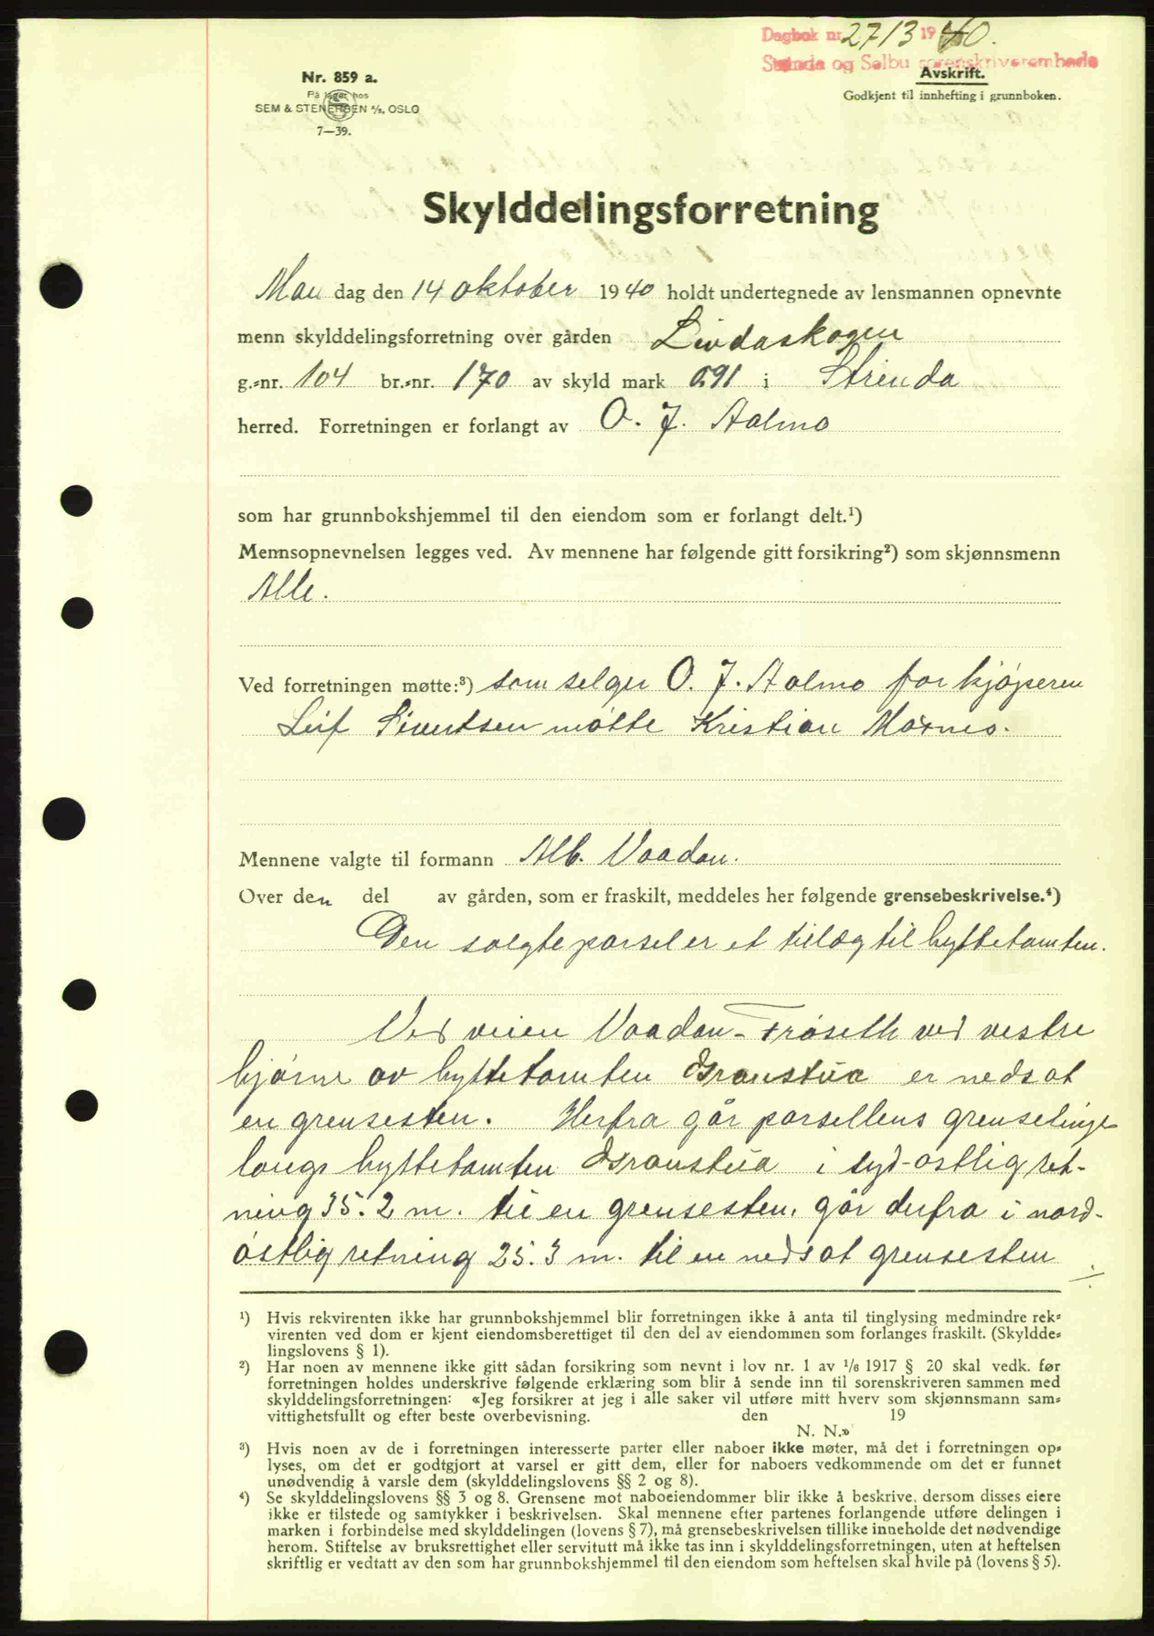 Dagbok nr. 2713 1940.
Strinda og Selbu sorenskriverembede
Nr. 859 a.
På lager hos
SEM & STENERSEN A/S, OSLO
7—39.
Avskrift.
Godkjent til innhefting i grunnboken.
Skylddelingsforretning
Man dag den 14 oktober 1940 holdt undertegnede av lensmannen opnevnte
menn skylddelingsforretning over gården Lindaskogen
g.-nr. 104 br.-nr. 170 av skyld mark 0.91 i Strinda
herred. Forretningen er forlangt av O. J. Aalmo
som har grunnbokshjemmel til den eiendom som er forlangt delt.¹)
Mennsopnevnelsen legges ved. Av mennene har følgende gitt forsikring²) som skjønnsmenn
Alle.
Ved forretningen møtte:³) som selger O. J. Aalmo for kjøperen
Leif Sivertsen møtte Kristian Moxnes.
Mennene valgte til formann Alb. Vaadan.
Over den del av gården, som er fraskilt, meddeles her følgende grensebeskrivelse.⁴)
Den solgte parsel er et tillæg til hyttetomten.
Ved veien Vaadan - Frøseth ved vestre
hjørne av hyttetomten Granstua er nedsat
en grensesten. Herfra går parsellens grenselinje
langs hyttetomten Granstua i syd-østlig ret-
ning 35.2 m. til en grensesten, går derfra i nord-
østlig retning 25.3 m. til en nedsat grensesten
./.
¹) Hvis rekvirenten ikke har grunnbokshjemmel blir forretningen ikke å anta til tinglysing medmindre rek-
virenten ved dom er kjent eiendomsberettiget til den del av eiendommen som forlanges fraskilt. (Skyldde-
lingslovens § 1).
²) Har noen av mennene ikke gitt sådan forsikring som nevnt i lov nr. 1 av 1/6 1917 § 20 skal vedk. før
forretningen holdes underskrive følgende erklæring som blir å sende inn til sorenskriveren sammen med
skylddelingsforretningen: «Jeg forsikrer at jeg i alle saker vil utføre mitt hverv som skjønnsmann sam-
vittighetsfullt og efter beste overbevisning. den 19
N. N.»
³) Hvis noen av de i forretningen interesserte parter eller naboer ikke møter, må det i forretningen op-
lyses, om det er godtgjort at varsel er gitt dem, eller for naboers vedkommende om det er funnet
unødvendig å varsle dem (skylddelingslovens §§ 2 og 8).
⁴) Se skylddelingslovens §§ 3 og 8. Grensene mot naboeiendommer blir ikke å beskrive, dersom disses eiere
ikke er tilstede og samtykker i beskrivelsen. Skal mennene efter partenes forlangende utføre delingen i
marken i forbindelse med skylddelingen (lovens § 7), må grensebeskrivelsen tillike inneholde det nødvendige
herom. Stiftelse av bruksrettighet eller servitutt må ikke tas inn i skylddelingsforretningen, uten at heftelsen
skriftlig er vedtatt av den som har grunnbokshjemmel til den eiendom som heftelsen skal hvile på (lovens § 5).